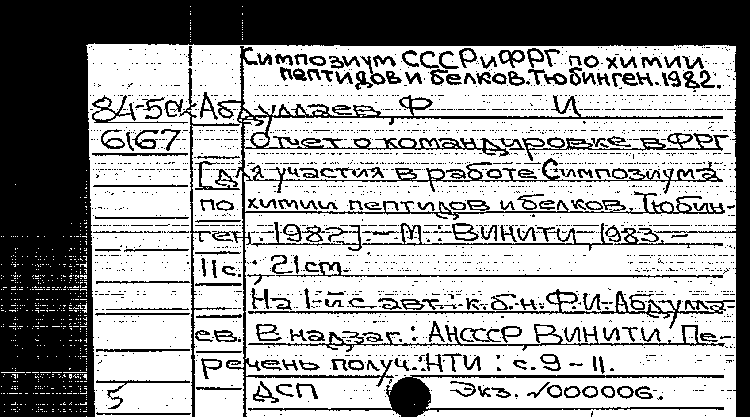 Симпозиум СССР и ФРГ по химии
пептидов и белков. Тюбинген. 1982.
84-5дк Абдуллаев, Ф И
6167 Отчет о командировке в ФРГ
[для участия в работе Симпозиума
по химии пептидов и белков. Тюбин-
ген. 1982]. - М.: ВИНИТИ, 1983. -
11с.; 21см.
На 1-й с. авт.: к.б.н. Ф.И. Абдулла-
ев. В надзаг.: АН СССР, ВИНИТИ. Пе-
речень получ. НТИ: с. 9-11.
5 ДСП Экз. √000006.